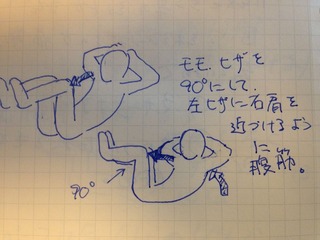 モモ、ヒザを
90°にして、
左ヒザに右肩を
近づけるよう
に
腹筋。
90°